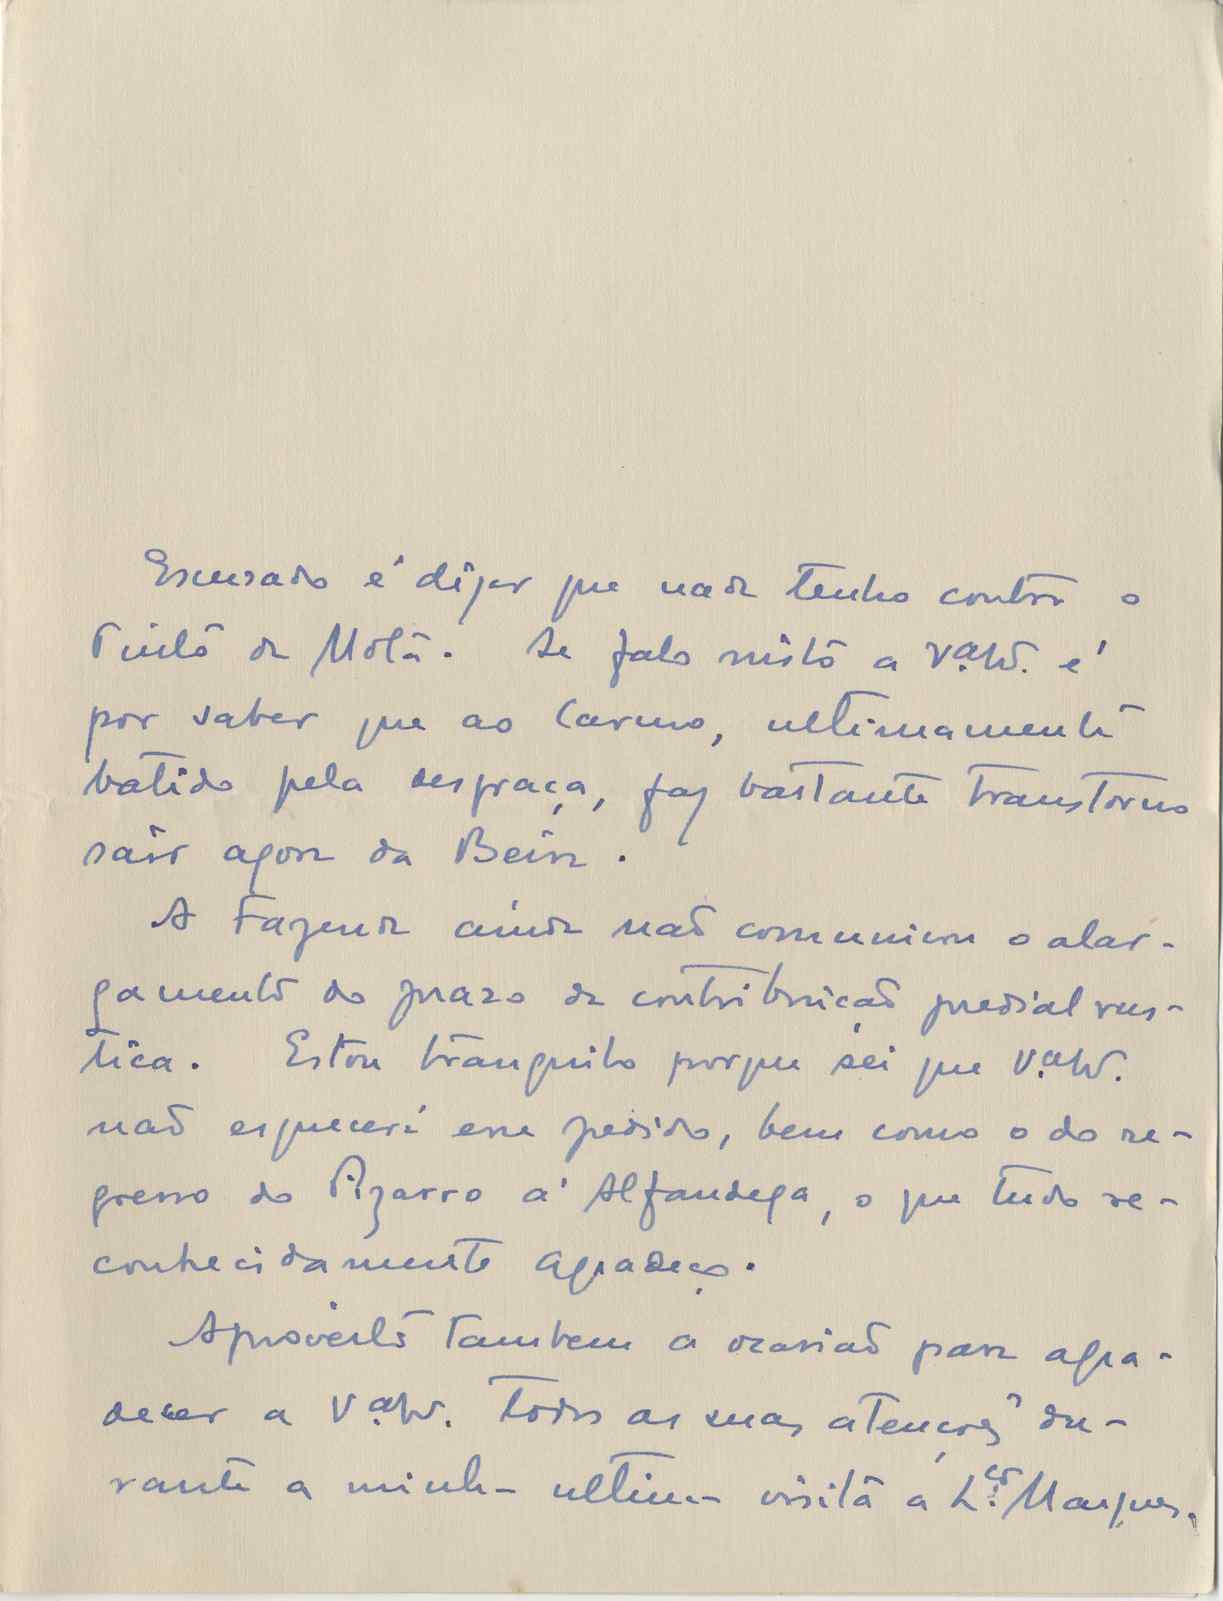 Escusado é dizer que nada tenho contra o
Pinto da Mota. Se falo nisto a V.a W. é
por saber que ao Carmo, ultimamente
batido pela desgraça, faz bastante transtorno
sair agora da Beira.
A Fazenda ainda não comunicou o alar-
gamento do prazo da contribuição predial rus-
tica. Estou tranquilo porque sei que V.a W.
não esquecerá esse pedido, bem como o do re-
gresso do Pizarro á Alfandega, o que tudo re-
conhecidamente agradeço.
Aproveito tambem a ocasião para agra-
decer a V.a W. todas as suas atenções du-
rante a minha ultima visita a L.ço Marques.